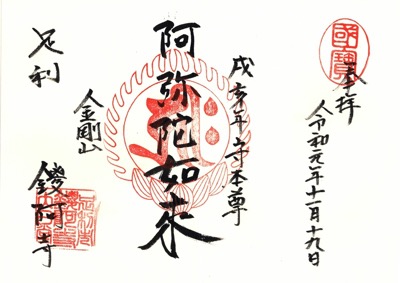 國寶
奉拜
令和元年十一月十九日
戌亥年守本尊
阿弥陀如来
金剛山
鑁阿寺
足利